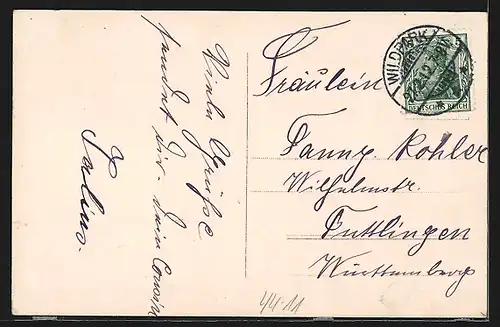 Viele Grüße
sendet dir dein Cousin
Julius.
Fräulein
Fanny Kohler
Wilhelmstr.
Tuttlingen
Württemberg
WILDPARK
DEUTSCHES REICH
44-11